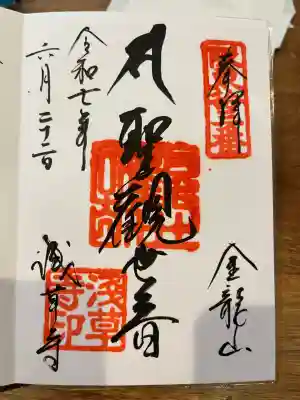 奉拝
金龍山
聖觀世音
令和七年
六月二十二日
浅草寺
浅草寺印